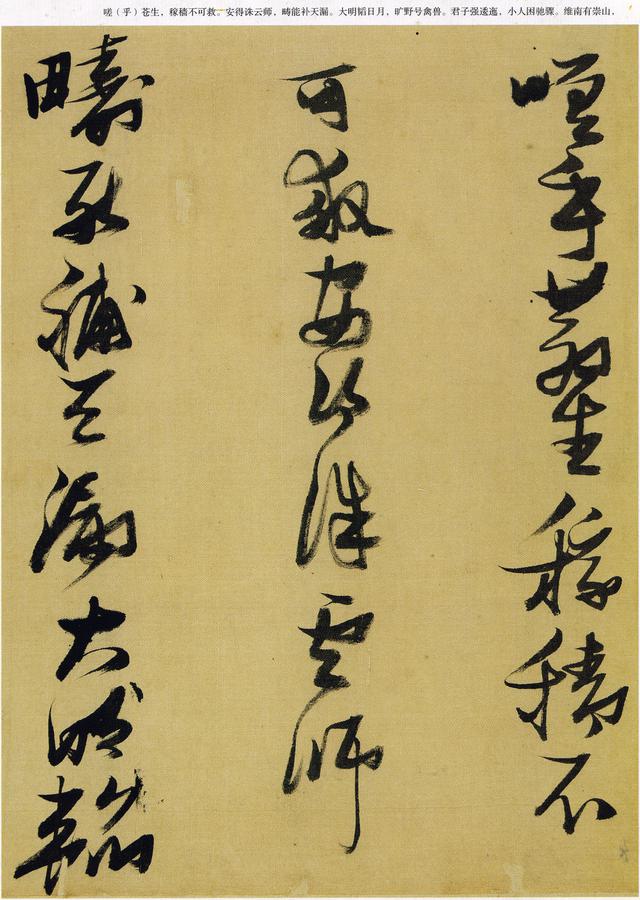 嗟（乎）苍生，稼穑不可救。安得诛云师，畴能补天漏。大明韬日月，旷野号禽兽。君子强逶迤，小人困驰骤。维南有崇山，
嗟乎蒼生稼穡不
可救安得誅雲師
疇能補天漏大明韜